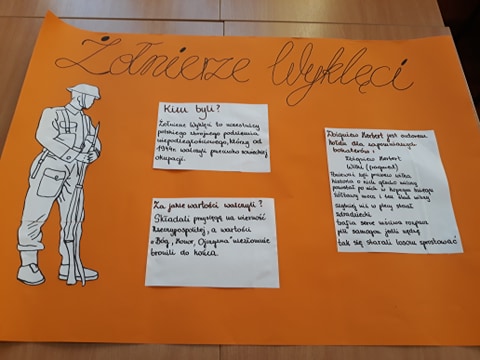 Żołnierze Wyklęci
Kim byli?
Żołnierze Wyklęci to uczestnicy
polskiego zbrojnego podziemia
niepodległościowego, którzy od
1944r. walczyli przeciwko sowieckiej
okupacji.
Za jakie wartości walczyli?
Składali przysięgę na wierność
Rzeczypospolitej, a wartości
"Bóg, Honor, Ojczyzna" niezłomnie
bronili do końca
Zbigniew Herbert jest autorem
hołdu dla zapomnianych
bohaterów:
Zbigniew Herbert
Wilki (fragment)
Ponieważ żyli prawem wilka
historia o nich głucho milczy
pozostał po nich w kopnym śniegu
żółtawy mocz i ten ślad wilczy
szybciej niż w plecy strzał
zdradziecki
trafiła serce mściwa rozpacz
pili samogon jedli nędzę
tak się starali losom sprostować